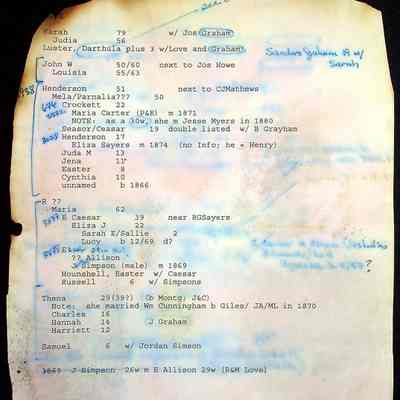 Sarah 79 w/ Jos Graham
Judia 56
Luster, Darthula plus 3 w/Love and Graham
Sandus Graham R w/
Sarah
John W 50/60 next to Jos Howe
Louisia 55/63
Henderson 51 next to CJMathews
Mela/Parnalia??? 50
Crockett 22
Maria Carter (P&E) m 1871
NOTE: as a wow, she m Jesse Myers in 1880
Seasor/Ceasar 19 double listed w/ B Grayham
Henderson 17
Eliza Sayers m 1874 (no Info; he = Henry)
Juda M 13
Jena 11
Easter 8
Cynthia 10
unnamed b 1866
R ??
Maria 62
E Caesar 39 near RGSayers
Eliza J 22
Sarah E/Sallie 2
Lucy b 12/69 d?
?? Allison
J Simpson (male) m 1869
Hounshell, Easter w/ Caesar
Russell 6 w/ Simpsons
?
Thena 29(39?) (b Montg; J&C)
Note: she married Wm Cunningham b Giles/ JA/ML in 1870
Charles 16
Hannah 14 J Graham
Harriett 12
Samuel 6 w/ Jordan Simson
1869 J Simpson 26w m E Allison 29w (R&M Love)